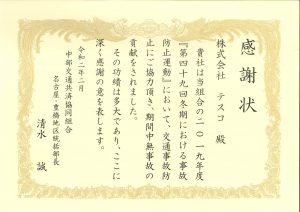 感謝状
株式会社 テスコ 殿
貴社は当組合の二〇一九年度
『第四十九回冬期における事故
防止運動』において、交通事故防
止にご協力頂き、期間中無事故の
貢献をされました。
その功績は多大であり、ここに
深く感謝の意を表します。
令和二年二月
中部交通共済協同組合
名古屋第一重機地区統括部長
清水 誠